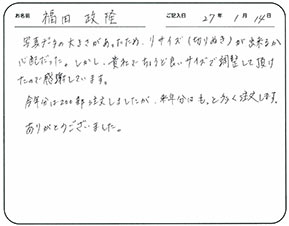 お名前 福田 政隆 ご記入日 27年 1月 14日
写真データの大きさがあったため、リサイズ(切りぬき)が出来るか
心配だった。しかし、貴社でちょうど良いサイズで調整して頂け
たので感謝しています。
今年分は200部注文しましたが、来年分はもっと多く注文します。
ありがとうございました。